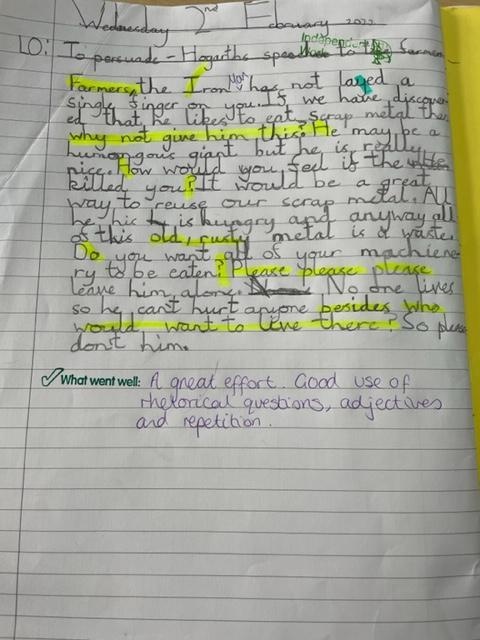 Wednesday 2nd February 2022
Independent
Work
LO: To persuade - Hogarths speech to the farmers
Farmers, the Iron Man has not layed a
single finger on you. If we have discover
ed that he likes to eat scrap metal then
why not give him this? He may be a
humongous giant but he is really
nice. How would you feel if the
killed you? It would be a great
way to reuse our scrap metal. All
he his is hungry and anyway all
of this old, rusty metal is a waste.
Do you want all of your machiene-
ry to be eaten? Please please please
leave him alone. No one lives
so he can't hurt anyone besides who
would want to live there? So please
don't him.
What went well: A great effort. Good use of
rhetorical questions, adjectives
and repetition.